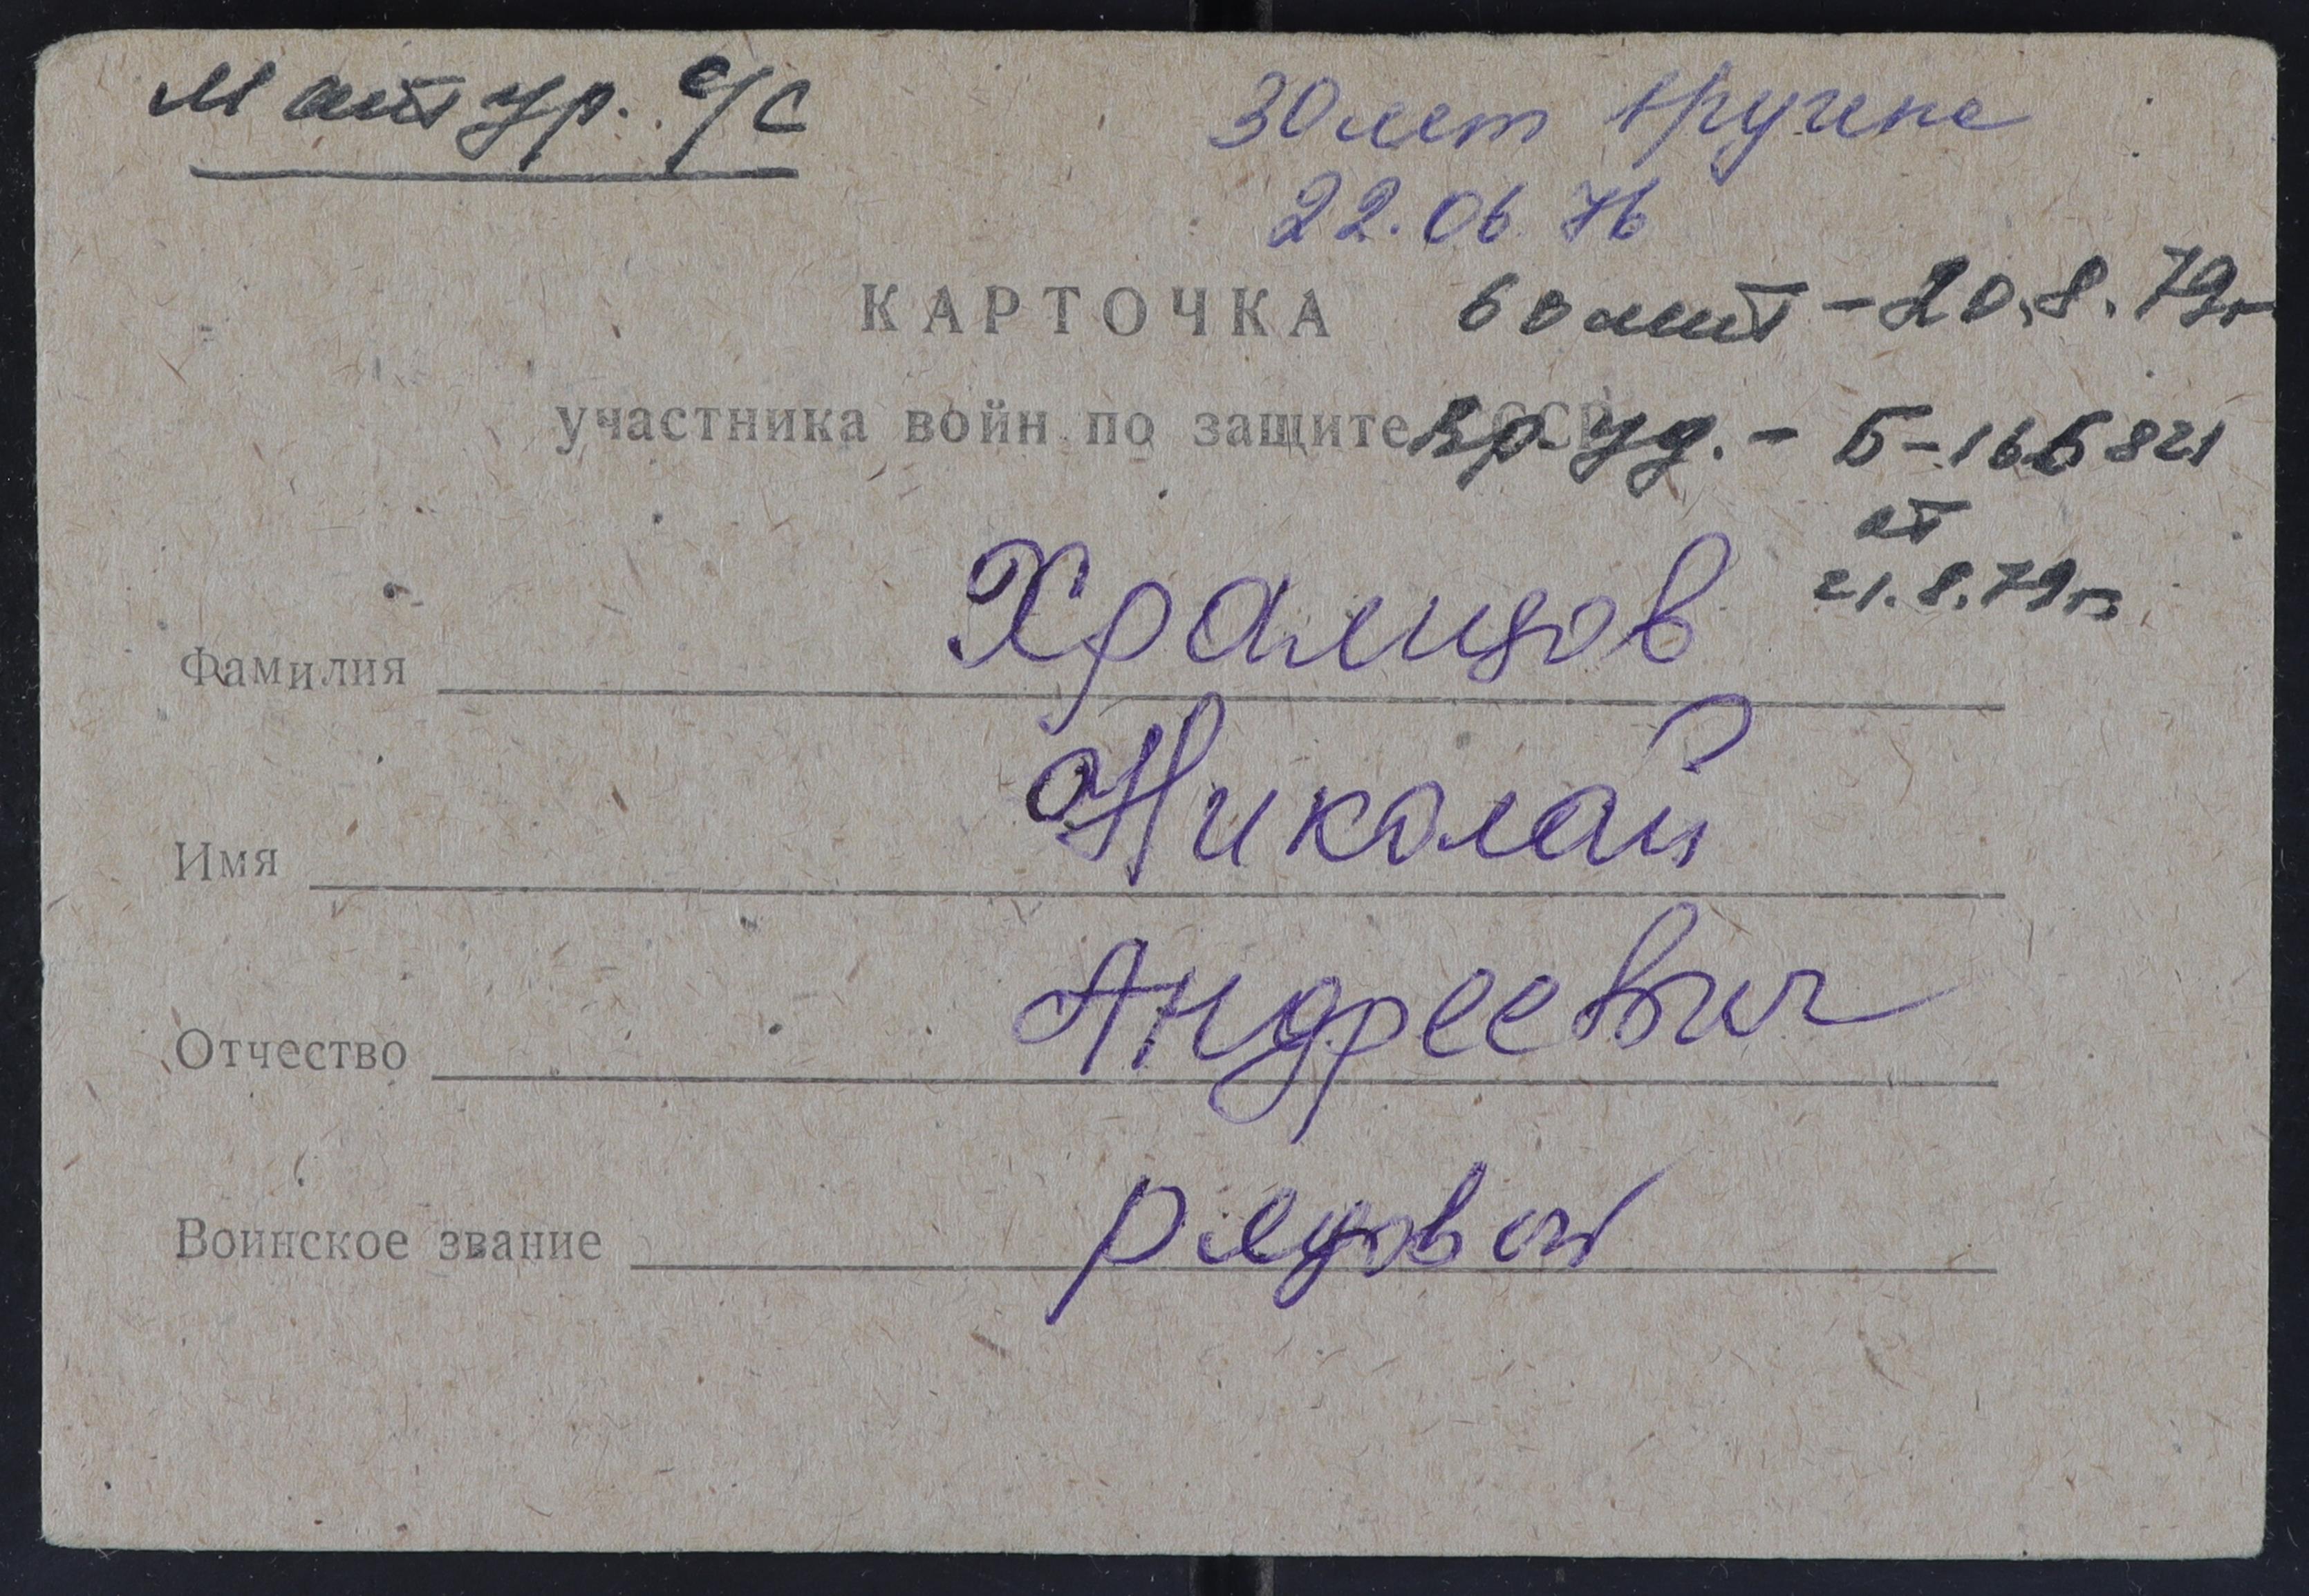 Матур. с/с
30 лет вручена
22.06.76
КАРТОЧКА
60 лет - 20.8.79г
участника войн по защите СССР
Вр. уд. - Б-166821
от
21.8.79г.
Фамилия Храмцов
Имя Николай
Отчество Андреевич
Воинское звание рядовой